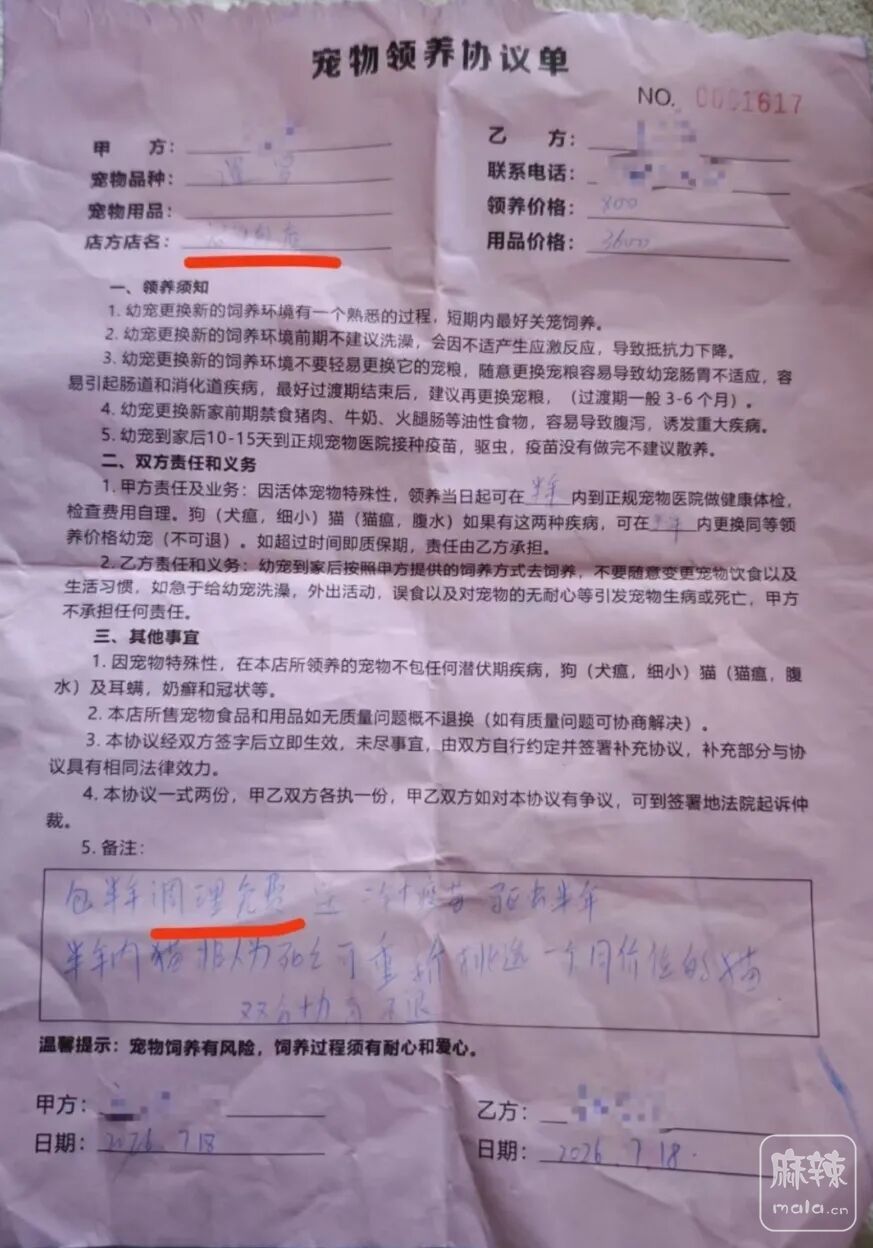 宠物领养协议单
NO. 0001617
甲 方：
乙 方：
宠物品种：
联系电话：
宠物用品：
领养价格：800
店方店名：
用品价格：3600
一、领养须知
1. 幼宠更换新的饲养环境有一个熟悉的过程，短期内最好关笼饲养。
2. 幼宠更换新的饲养环境前期不建议洗澡，会因不适产生应激反应，导致抵抗力下降。
3. 幼宠更换新的饲养环境不要轻易更换它的宠粮，随意更换宠粮容易导致幼宠肠胃不适应，容
易引起肠道和消化道疾病，最好过渡期结束后，建议再更换宠粮，（过渡期一般 3-6 个月）。
4. 幼宠更换新家前期禁食猪肉、牛奶、火腿肠等油性食物，容易导致腹泻，诱发重大疾病。
5. 幼宠到家后10-15天到正规宠物医院接种疫苗，驱虫，疫苗没有做完不建议散养。
二、双方责任和义务
1. 甲方责任及业务：因活体宠物特殊性，领养当日起可在半年内到正规宠物医院做健康体检，
检查费用自理。狗（犬瘟，细小）猫（猫瘟，腹水）如果有这两种疾病，可在半年内更换同等领
养价格幼宠（不可退）。如超过时间即质保期，责任由乙方承担。
2. 乙方责任和义务：幼宠到家后按照甲方提供的饲养方式去饲养，不要随意变更宠物饮食以及
生活习惯，如急于给幼宠洗澡，外出活动，误食以及对宠物的无耐心等引发宠物生病或死亡，甲方
不承担任何责任。
三、其他事宜
1. 因宠物特殊性，在本店所领养的宠物不包任何潜伏期疾病，狗（犬瘟，细小）猫（猫瘟，腹
水）及耳螨，奶癣和冠状等。
2. 本店所售宠物食品和用品如无质量问题概不退换（如有质量问题可协商解决）。
3. 本协议经双方签字后立即生效，未尽事宜，由双方自行约定并签署补充协议，补充部分与协
议具有相同法律效力。
4. 本协议一式两份，甲乙双方各执一份，甲乙双方如对本协议有争议，可到签署地法院起诉仲
裁。
5. 备注：
包半年调理免费 送 针疫苗 驱虫半年
半年内猫非人为死亡可重新挑选一个同价位的猫
双方 不退
温馨提示：宠物饲养有风险，饲养过程须有耐心和爱心。
甲方：
乙方：
日期：2026.7.18
日期：2026.7.18.
麻辣
mala.cn